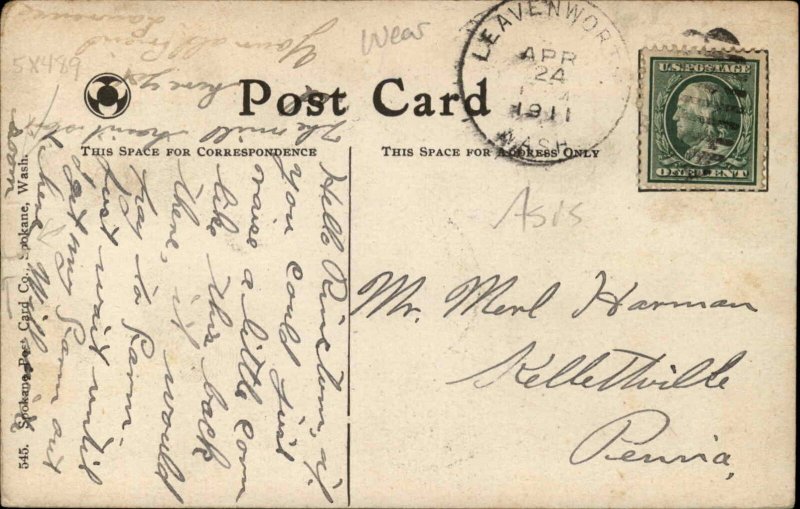 5X489
wear
Post Card
THIS SPACE FOR CORRESPONDENCE
THIS SPACE FOR ADDRESS ONLY
LEAVENWORTH
APR
24
1911
WASH.
U.S. POSTAGE
ONE CENT
Asis
Mr. Merl Harman
Kellettville
Penna,
Hello, if
you could just
raise a little corn
like this back
there, it would
pay to farm
just wait until
I get my farm out
here. Will
soon
The mill
here yet
Your old friend
Lawrence
545. Spokane Post Card Co., Spokane, Wash.